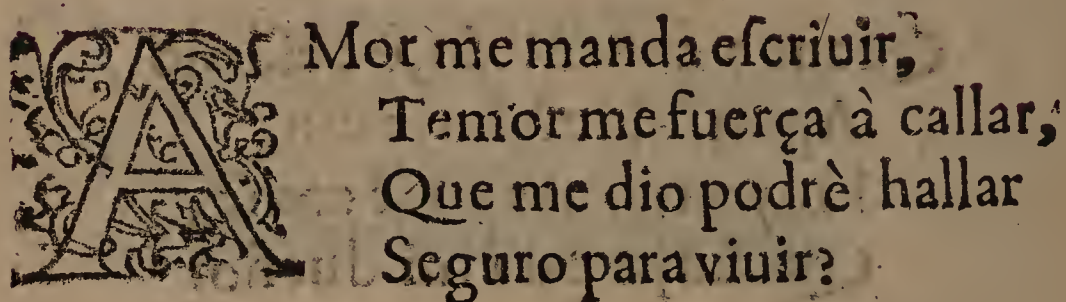 AMor me manda eſcriuir,
Temor me fuerça à callar,
Que me dio podrè hallar
Seguro para viuir?